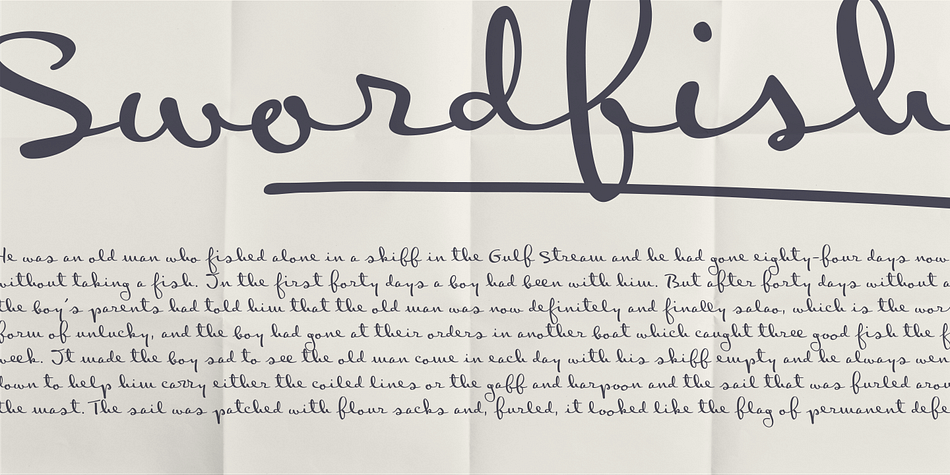 Swordfish
He was an old man who fished alone in a skiff in the Gulf Stream and he had gone eighty-four days now
without taking a fish. In the first forty days a boy had been with him. But after forty days without a
the boy's parents had told him that the old man was now definitely and finally salao, which is the wor
form of unlucky, and the boy had gone at their orders in another boat which caught three good fish the f
week. It made the boy sad to see the old man come in each day with his skiff empty and he always wen
down to help him carry either the coiled lines or the gaff and harpoon and the sail that was furled arou
the mast. The sail was patched with flour sacks and, furled, it looked like the flag of permanent defe